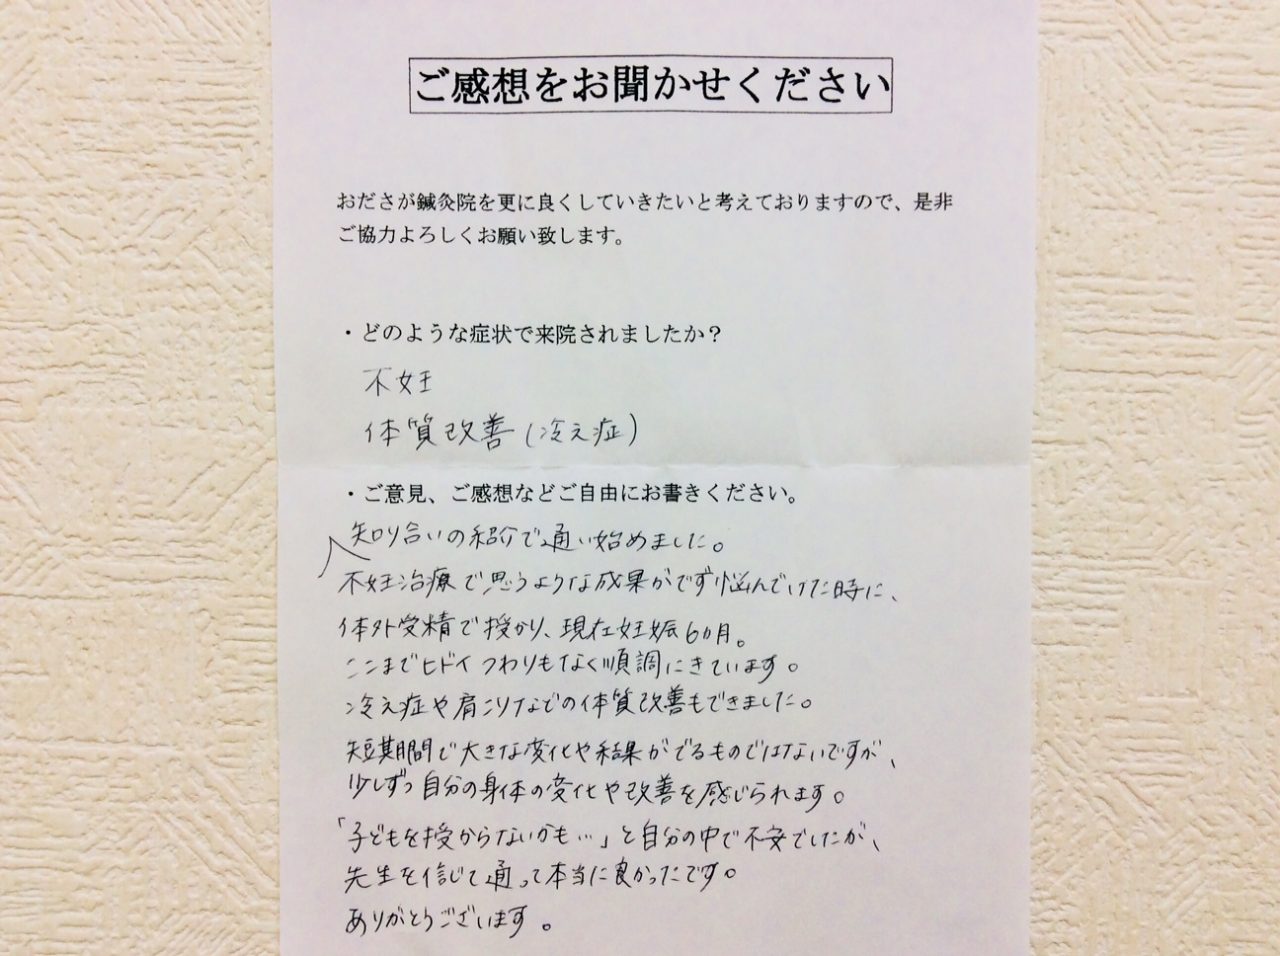 ご感想をお聞かせください
おださが鍼灸院を更に良くしていきたいと考えておりますので、是非
ご協力よろしくお願い致します。
・どのような症状で来院されましたか？
不妊
体質改善(冷え症)
・ご意見、ご感想などご自由にお書きください。
知り合いの紹介で通い始めました。
不妊治療で思うような成果がでず悩んでいた時に、
体外受精で授かり、現在妊娠6ヵ月。
ここまでヒドイつわりもなく順調にきています。
冷え症や肩こりなどの体質改善もできました。
短期間で大きな変化や結果がでるものではないですが、
少しずつ自分の身体の変化や改善を感じられます。
「子どもを授からないかも…」と自分の中で不安でしたが、
先生を信じて通って本当に良かったです。
ありがとうございます。